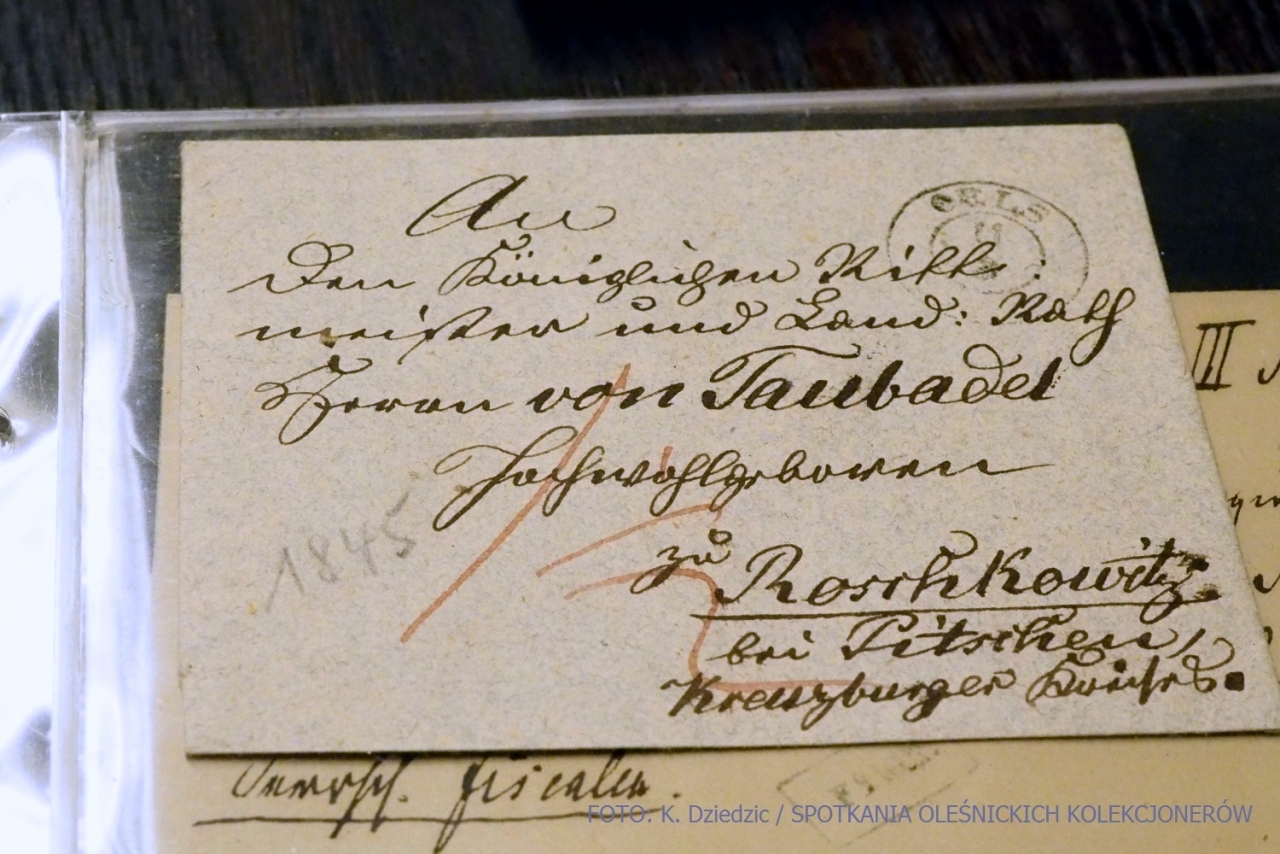 An
OELS
Den Königlichen Ritt-
meister und Land: Rath
Herrn von Taubadel
Hochwohlgeboren
1845
zu Roschkowitz
bei Pitschen,
Kreuzburger Kreises.
III
Herrsch. fiscalia.
FOTO: K. Dziedzic / SPOTKANIA OLEŚNICKICH KOLEKCJONERÓW